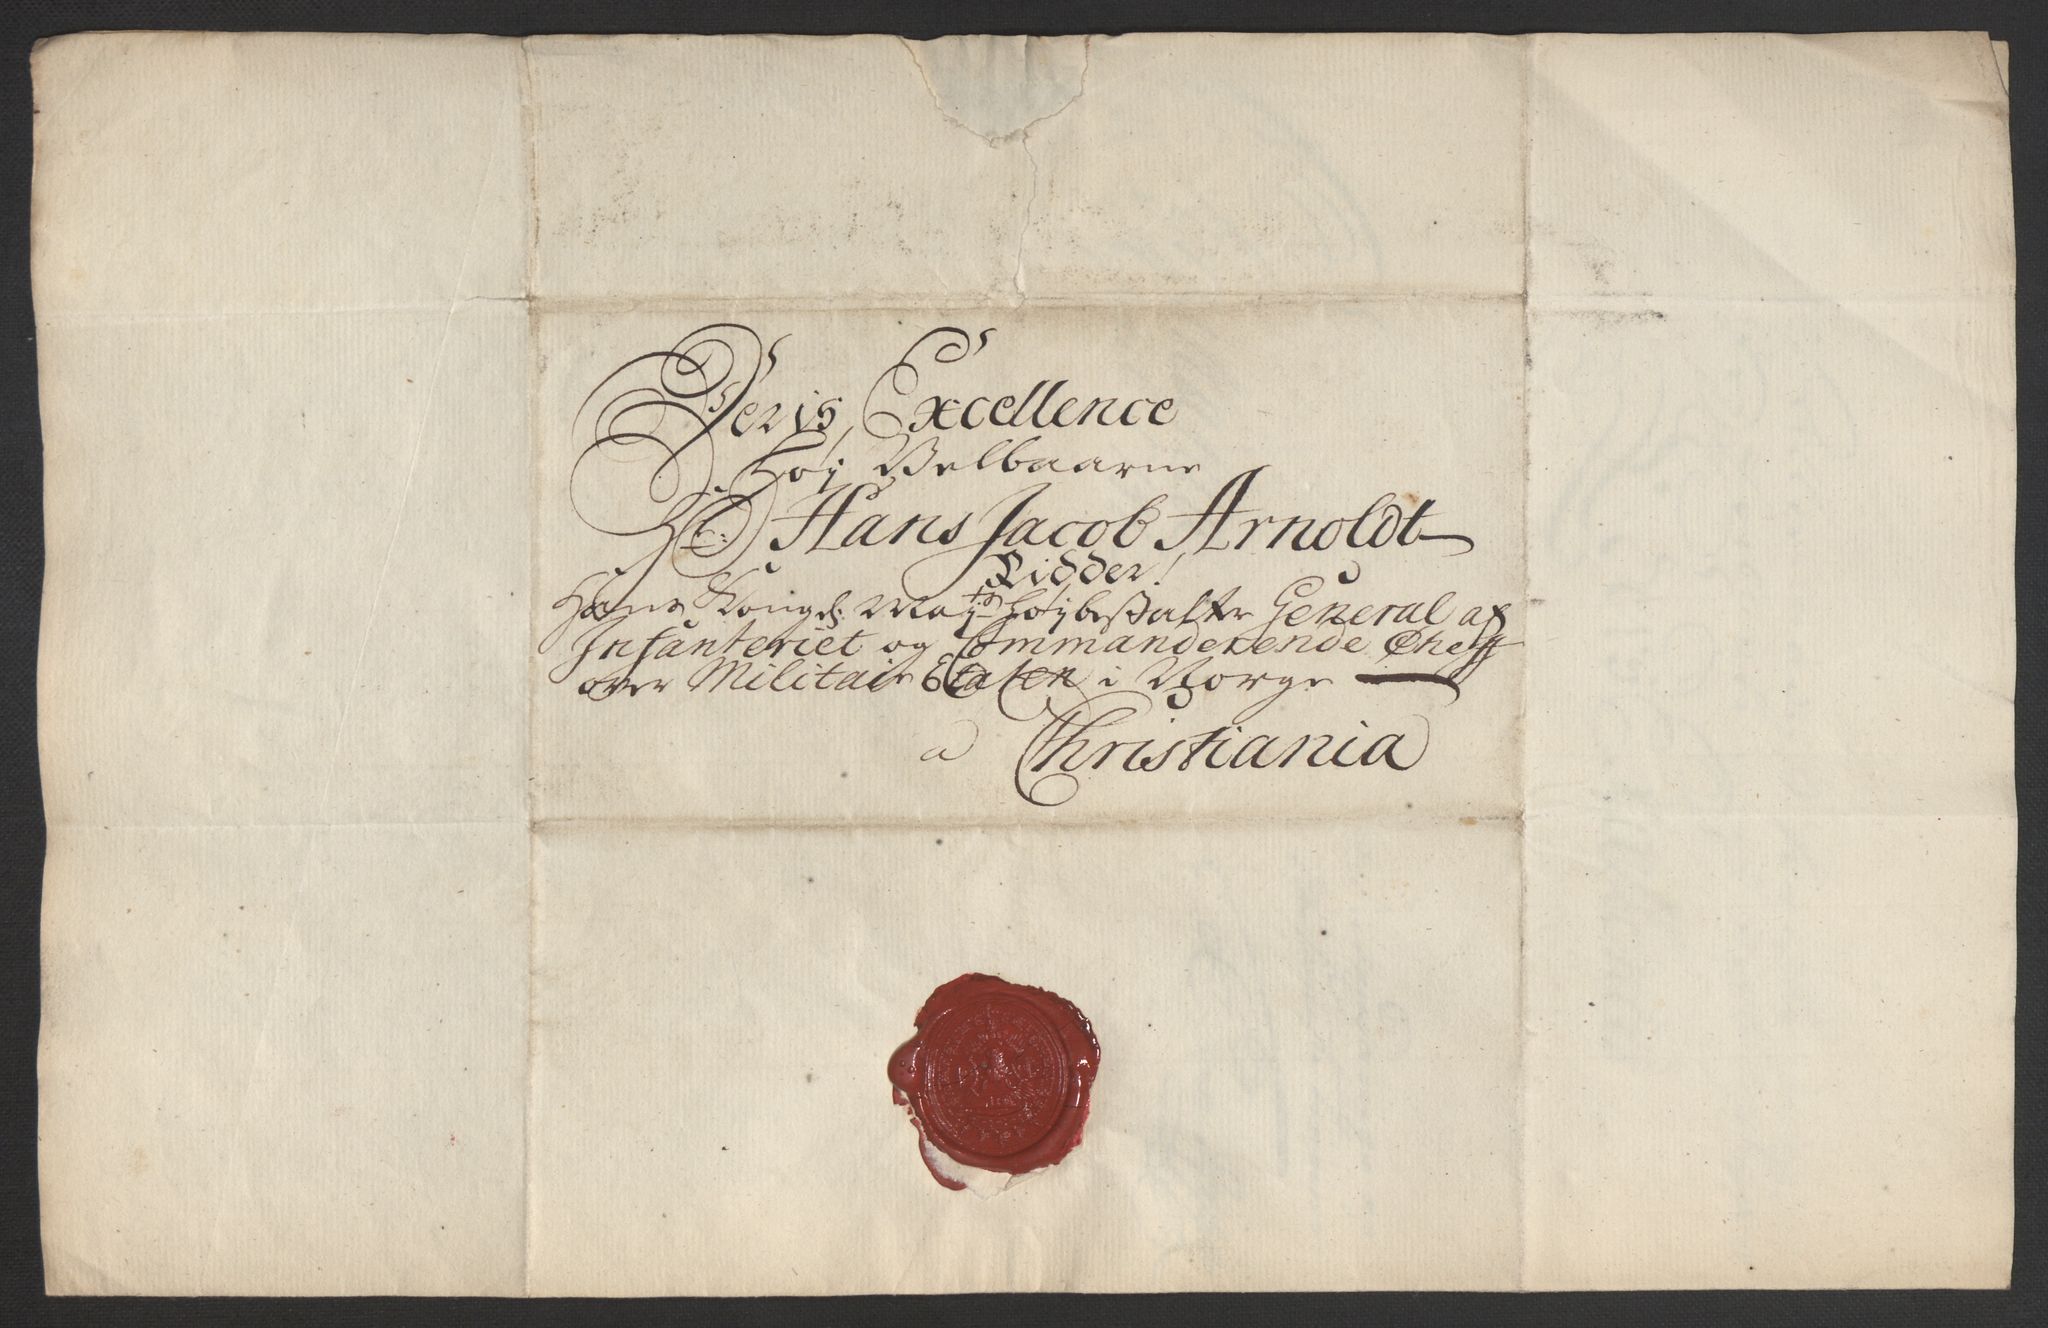 Deris Excellence
Høy Velbaarne
Hr: Hans Jacob Arnoldt
Ridder!
Hans Kongl: May:ts Høybestalte General af
Infanteriet og Commanderende Cheff
over Militair Etaten i Norge
a Christiania